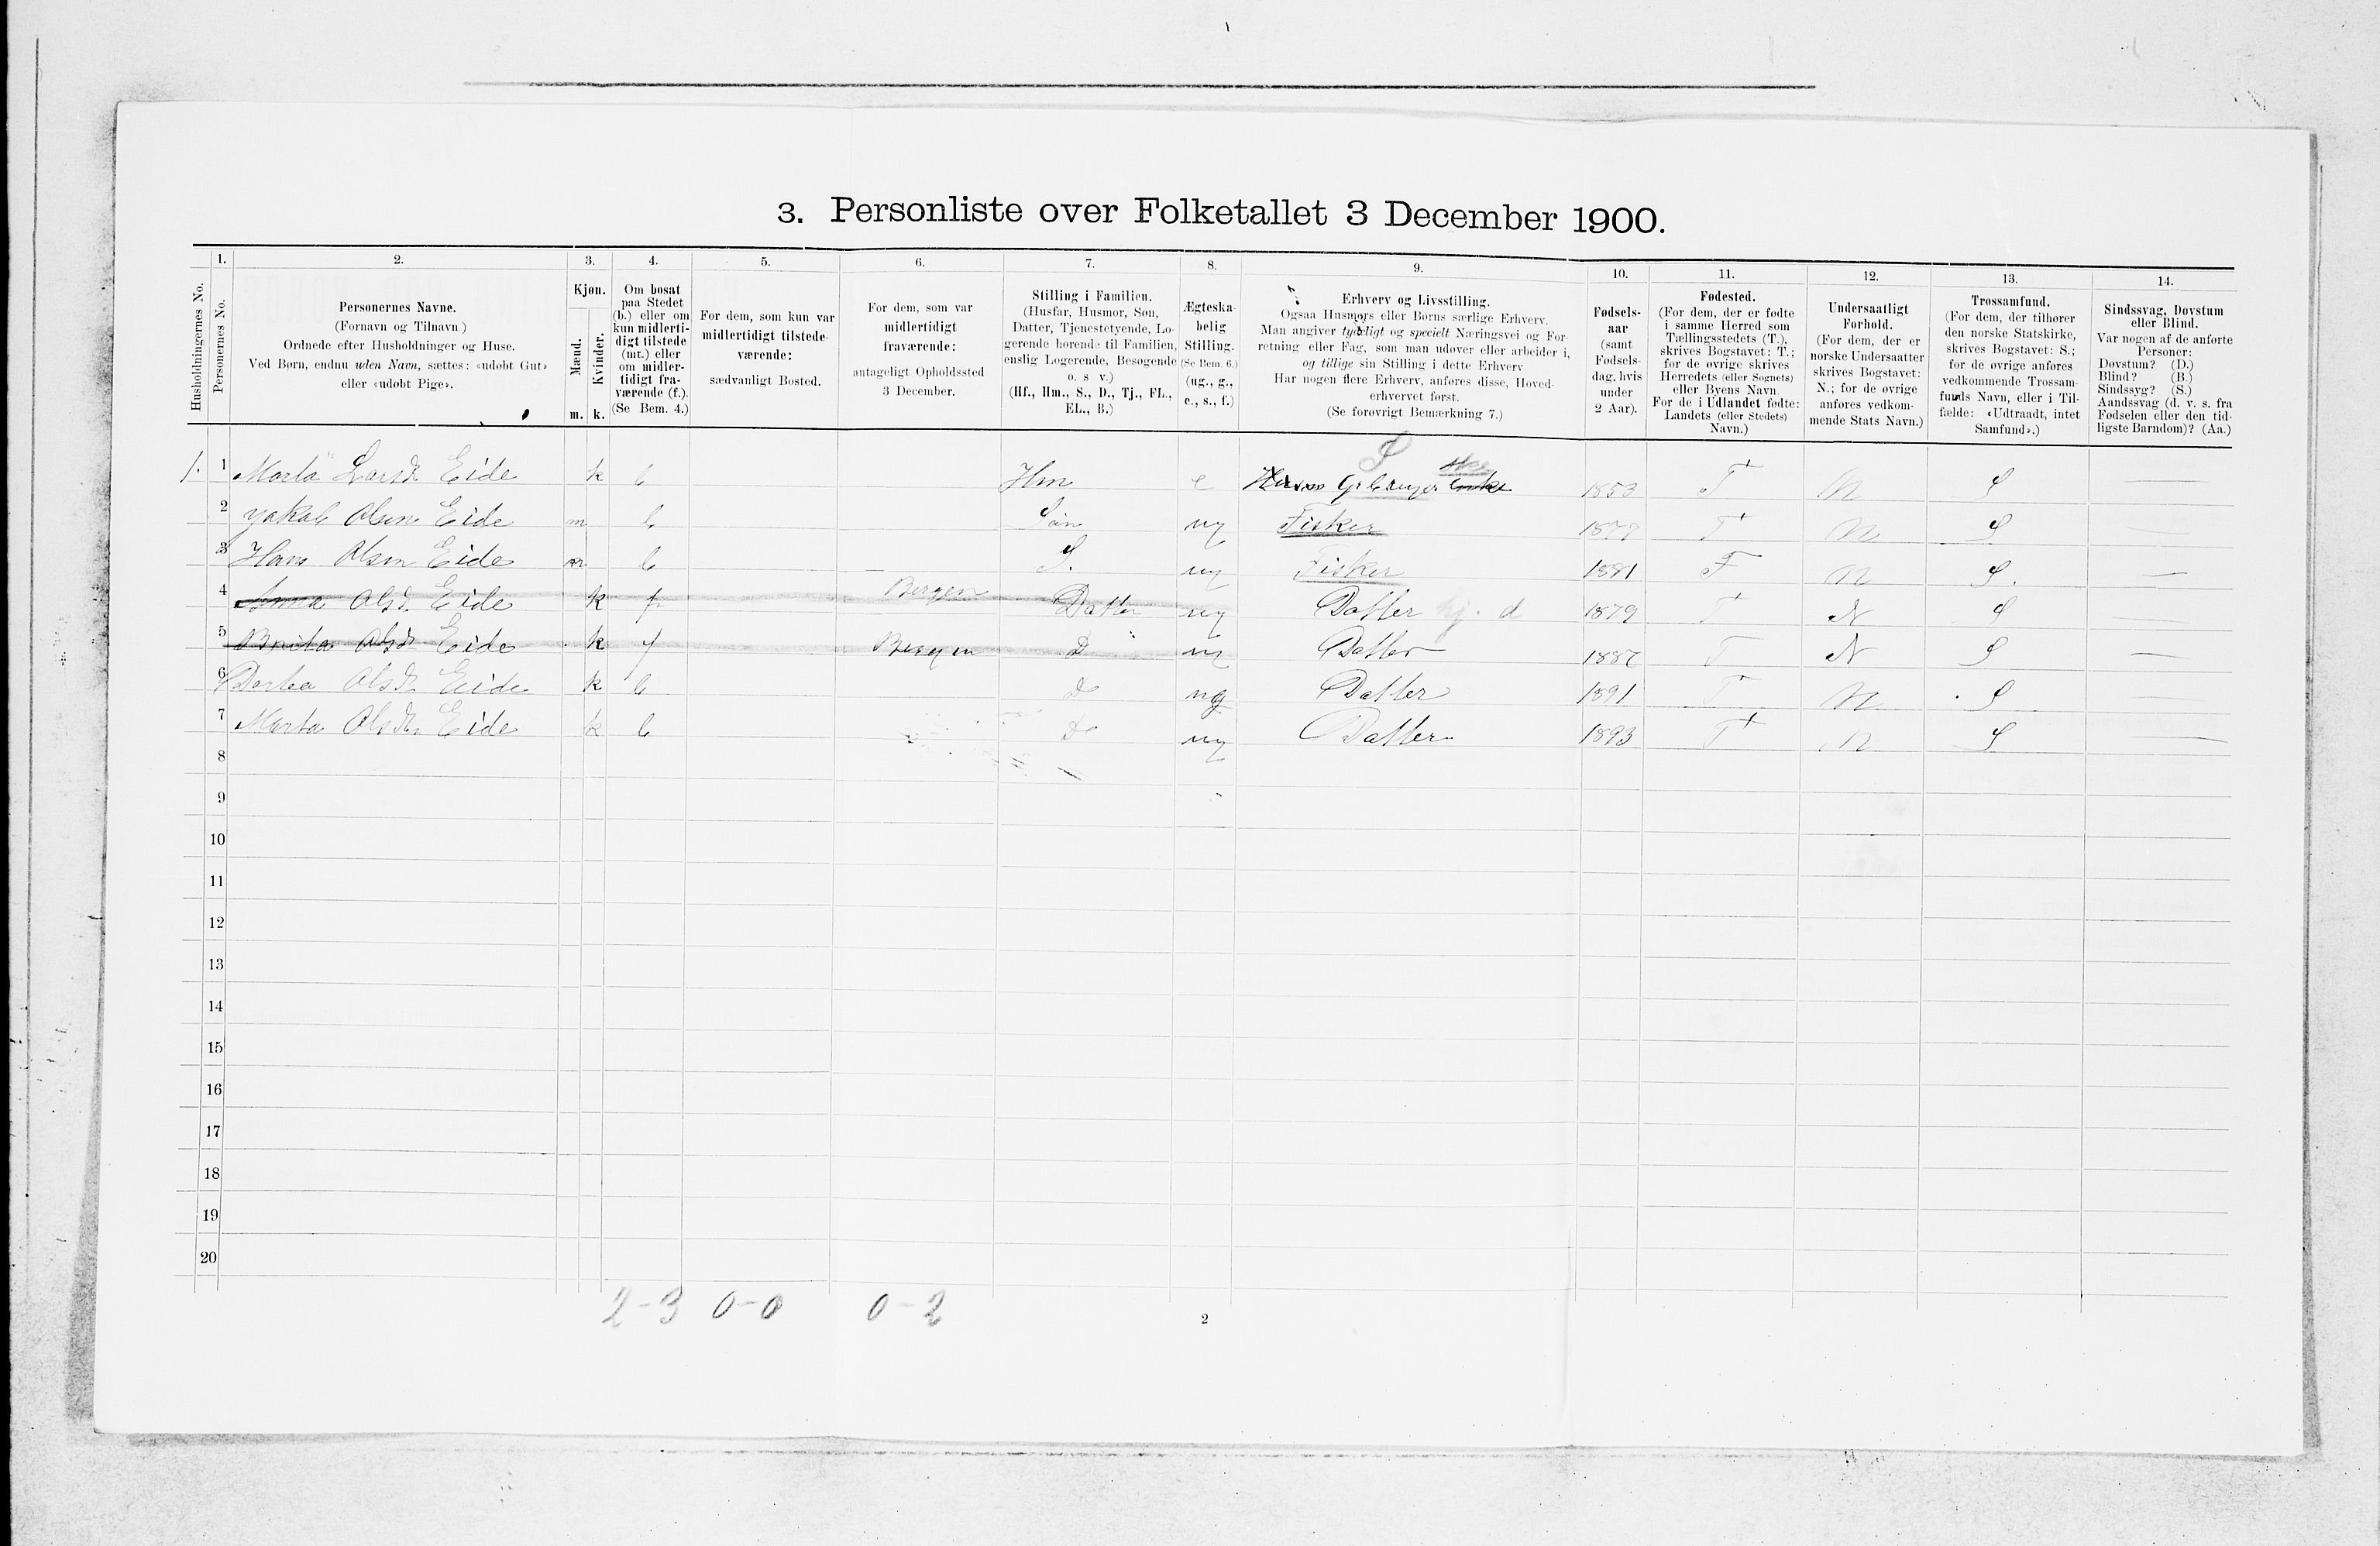 3. Personliste over Folketallet 3 December 1900.
1. 2. 3. 4. 5. 6. 7. 8. 9. 10. 11. 12. 13. 14.
Husholdningernes No.
Personernes No.
Personernes Navne.
(Fornavn og Tilnavn.)
Ordnede efter Husholdninger og Huse.
Ved Børn, endnu uden Navn, sættes: «udøbt Gut»
eller «udøbt Pige».
Kjøn.
Mænd.
Kvinder.
m. k.
Om bosat
paa Stedet
(b.) eller om
kun midlerti-
digt tilstede
(mt.) eller
om midler-
tidigt fra-
værende (f.).
(Se Bem. 4.)
For dem, som kun var
midlertidigt tilstede-
værende:
sædvanligt Bosted.
For dem, som var
midlertidigt
fraværende:
antageligt Opholdssted
3 December.
Stilling i Familien.
(Husfar, Husmor, Søn,
Datter, Tjenestetyende, Lo-
gerende hørende til Familien,
enslig Logerende, Besøgende
o. s v.)
(Hf., Hm., S., D., Tj., FL.,
EL., B.)
Ægteska-
belig
Stilling.
(Se Bem. 6.)
(ug., g.,
e., s., f.)
Erhverv og Livsstilling.
Ogsaa Husmors eller Børns særlige Erhverv.
Man angiver tydeligt og specielt Næringsvei og For-
retning eller Fag, som man udøver eller arbeider i,
og tillige sin Stilling i dette Erhverv.
Har nogen flere Erhverv, anføres disse, Hoved-
erhvervet først.
(Se forøvrigt Bemærkning 7.)
Fødsels-
aar
(samt
Fødsels-
dag, hvis
under
2 Aar).
Fødested.
(For dem, der er fødte
i samme Herred som
Tællingsstedets (T.),
skrives Bogstavet: T.;
for de øvrige skrives
Herredets (eller Sognets)
eller Byens Navn.
For de i Udlandet fødte:
Landets (eller Stedets)
Navn.)
Undersaatligt
Forhold.
(For dem, der er
norske Undersaatter
skrives Bogstavet:
N.; for de øvrige
anføres vedkom-
mende Stats Navn.)
Trossamfund.
(For dem, der tilhører
den norske Statskirke,
skrives Bogstavet: S.;
for de øvrige anføres
vedkommende Trossam-
funds Navn, eller i Til-
fælde: «Udtraadt, intet
Samfund».)
Sindssvag, Døvstum
eller Blind.
Var nogen af de anførte
Personer:
Døvstum? (D.)
Blind? (B.)
Sindssyg? (S.)
Aandssvag (d. v. s. fra
Fødselen eller den tid-
ligste Barndom)? (Aa.)
S
1. 1 Marta Larsd. Eide k b Hm e Enke 1853 T N S —
2 Yakob Olsen Eide m b Søn ug Fisker T N S —
3 Hans Olsen Eide m b S. ug Fisker 1881 T N S. —
4 Anna Olsd. Eide k f Bergen Datter ug Datter hj. d 1879 T N S —
5 Brita Olsd. Eide k f Bergen D ug Datter 1887 T N S —
6 Dortea Olsd. Eide k b D ug Datter 1891 T N S —
7 Marta Olsd. Eide k b D ug Datter 1893 T N S —
8
9
10
11
12
13
14
15
16
17
18
19
20
2-3 0-0 0-2
2